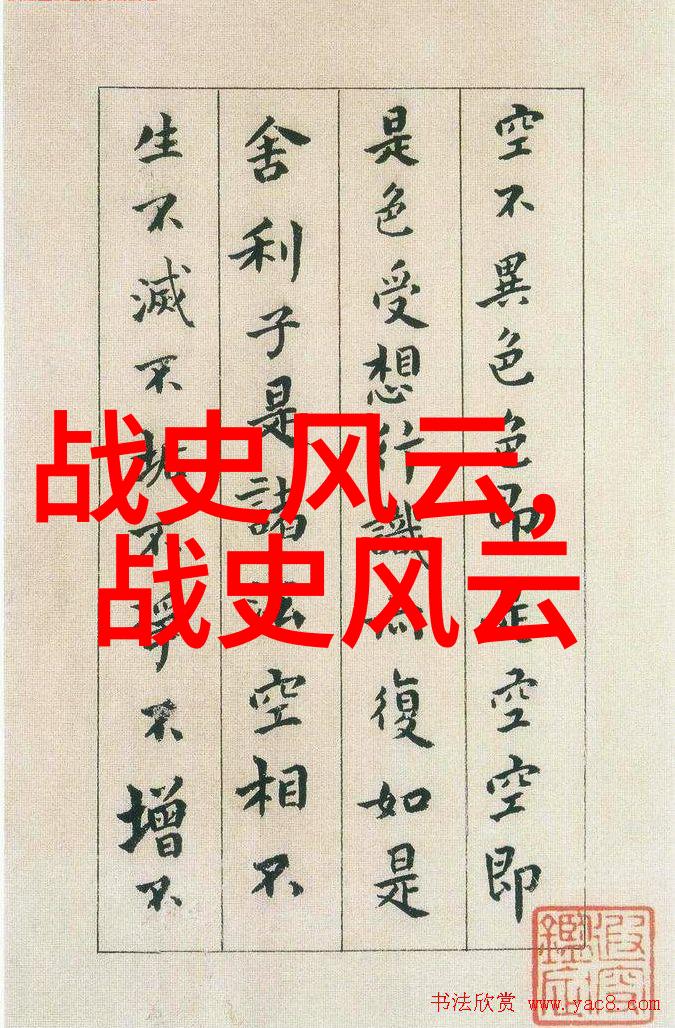 空不異色色即是空空即
是色受想行識亦復如是
舍利子是諸法空相不
生不滅不垢不淨不增不
战史风云,
战史风云
书法欣赏 www.yac8.com